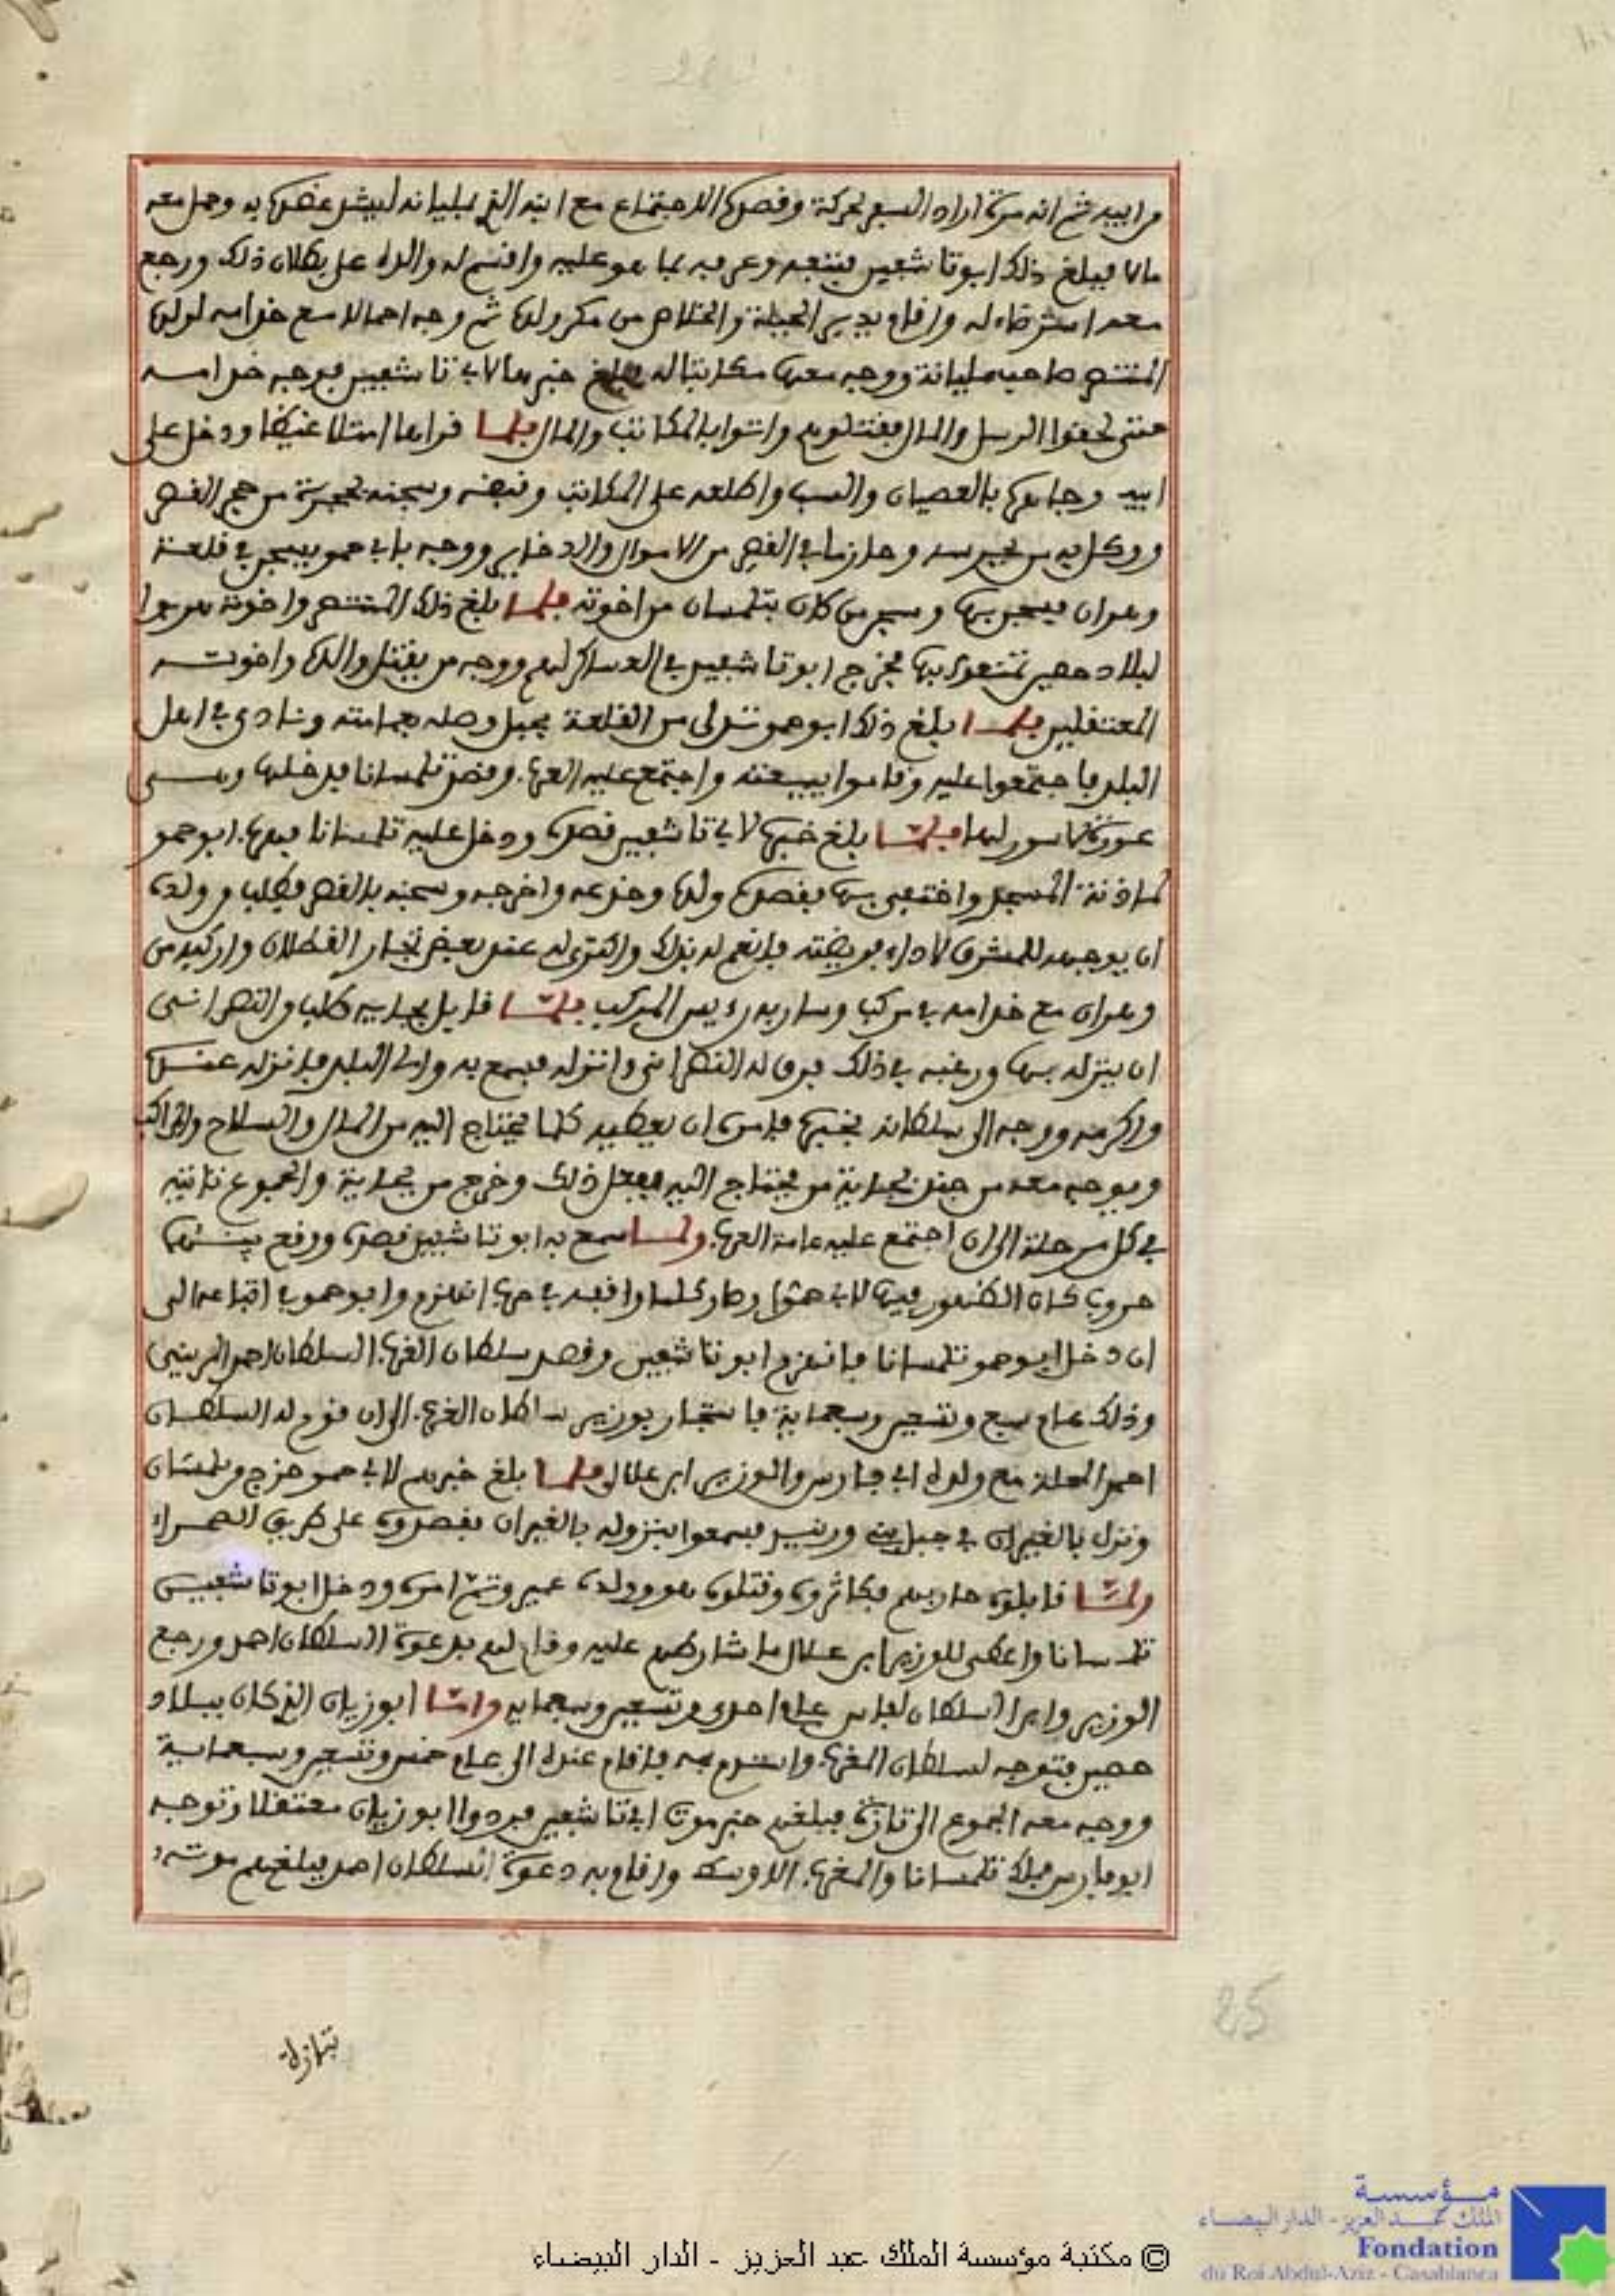 من ابيه ثم انه مرة اراد السفر لحركة وقصده الاجتماع مع ابنه الذي بمليانه ليشد عضده به وحمل معه
مالا فبلغ ذلك ابو تاشفين فتبعه وعرفه بما هو عليه واقسم له والده على بطلان ذلك ورجع
معه استرضاء له واقام يدبر الحيلة والخلاص من مكر ولده ثم وجه احمالا مع خدامه لولده
المنتصر صاحب مليانة ووجه معهم مكاتبا له فبلغ خبرها لابي تاشفين فوجه خدامه
حتى لحقوا الرسل والمال فقتلوهم واتوا بالمكاتب والمال فلما قراها امتلا غيظا ودخل على
ابيه وجاهره بالعصيان والسب واطلعه على المكاتب وقبضه وسجنه بحجرة من حجر القصر
ووكل به من يحرسه وحاز ما في القصر من الاموال والدخاير ووجه بابي حمو يسجن في قلعة
وهران فسجن بها وسجن من كان بتلمسان من اخوته فلما بلغ ذلك المنتصر واخوته هربوا
لبلاد حصين تمنعوا بها فخرج ابو تاشفين في العساكر لهم ووجه من يقتل والده واخوته
المعتقلين فلما بلغ ذلك ابو حمو تدلى من القلعة بحبل وصله بعمامته ونادى في اهل
البلد فاجتمعوا عليه وقاموا ببيعته واجتمع عليه العرب وقصد تلمسانا فدخلها وهي
عورة لا سور لها فلما بلغ خبره لابي تاشفين قصده ودخل عليه تلمسانا فهرب ابو حمو
لماذنة المسجد واختفى بها فقصده ولده وخدعه واخرجه وسجنه بالقصر فطلب من ولده
ان يوجهه للمشرق لاداء فريضته فانعم له بذلك واكترى له عند بعض تجار القطلان واركبه من
وهران مع خدامه في مركب وسار به رءيس المركب فلما قابل بجاية طلب من النصراني
ان ينزله بها ورغبه في ذلك فرق له النصراني وانزله فسمع به والي البلد فانزله عنده
واكرمه ووجه الى سلطانه يخبره فامره ان يعطيه كلما يحتاج اليه من المال والسلاح والمراكب
ويوجه معه من جند بجاية من يحتاج اليه ففعل ذلك وخرج من بجاية والجموع تاتيه
في كل مرحلة الى ان اجتمع عليه عامة العرب ولما سمع به ابو تاشفين قصده ووقع بينهما
حروب كان الظهور فيها لابي حمو وصار كلما واقعه في حرب انهزم وابو حمو في اتباعه الى
ان دخل ابو حمو تلمسانا فانهزم ابو تاشفين وقصد سلطان الغرب السلطان احمد المريني
وذلك عام سبع وتسعين وسبعماية فاستجار بوزير سلطان الغرب الى ان قوم له السلطان
احمد المحلة مع ولده ابي فارس والوزير ابن علال فلما بلغ خبرهم لابي حمو خرج من تلمسان
ونزل بالغيران في جبل بني ورنيد فسمعوا بنزوله بالغيران فقصدوه على طريق الصحراء
ولما قابلوه حاربهم فكاثروه وقتلوه هو وولده عمير وتم امره ودخل ابو تاشفين
تلمسانا واعطى للوزير ابن علال ما شارطهم عليه وقام لهم بدعوة السلطان احمد ورجع
الوزير وابن السلطان لفاس عام احدى وتسعين وسبعمايه واما ابو زيان الذي كان ببلاد
حصين فتوجه لسلطان المغرب واستصرم به فاقام عنده الى عام خمس وتسعين وسبعماية
ووجه معه الجموع الى تازة فبلغهم خبر موت ابي تاشفين فردوا ابو زيان معتقلا وتوجه
ابو فارس فملك تلمسانا والمغرب الاوسط واقام به دعوة السلطان احمد فبلغهم موته
بتازة
25
© مكتبة مؤسسة الملك عبد العزيز - الدار البيضاء
مؤسسة
الملك عبد العزيز - الدار البيضاء
Fondation
du Roi Abdul-Aziz - Casablanca